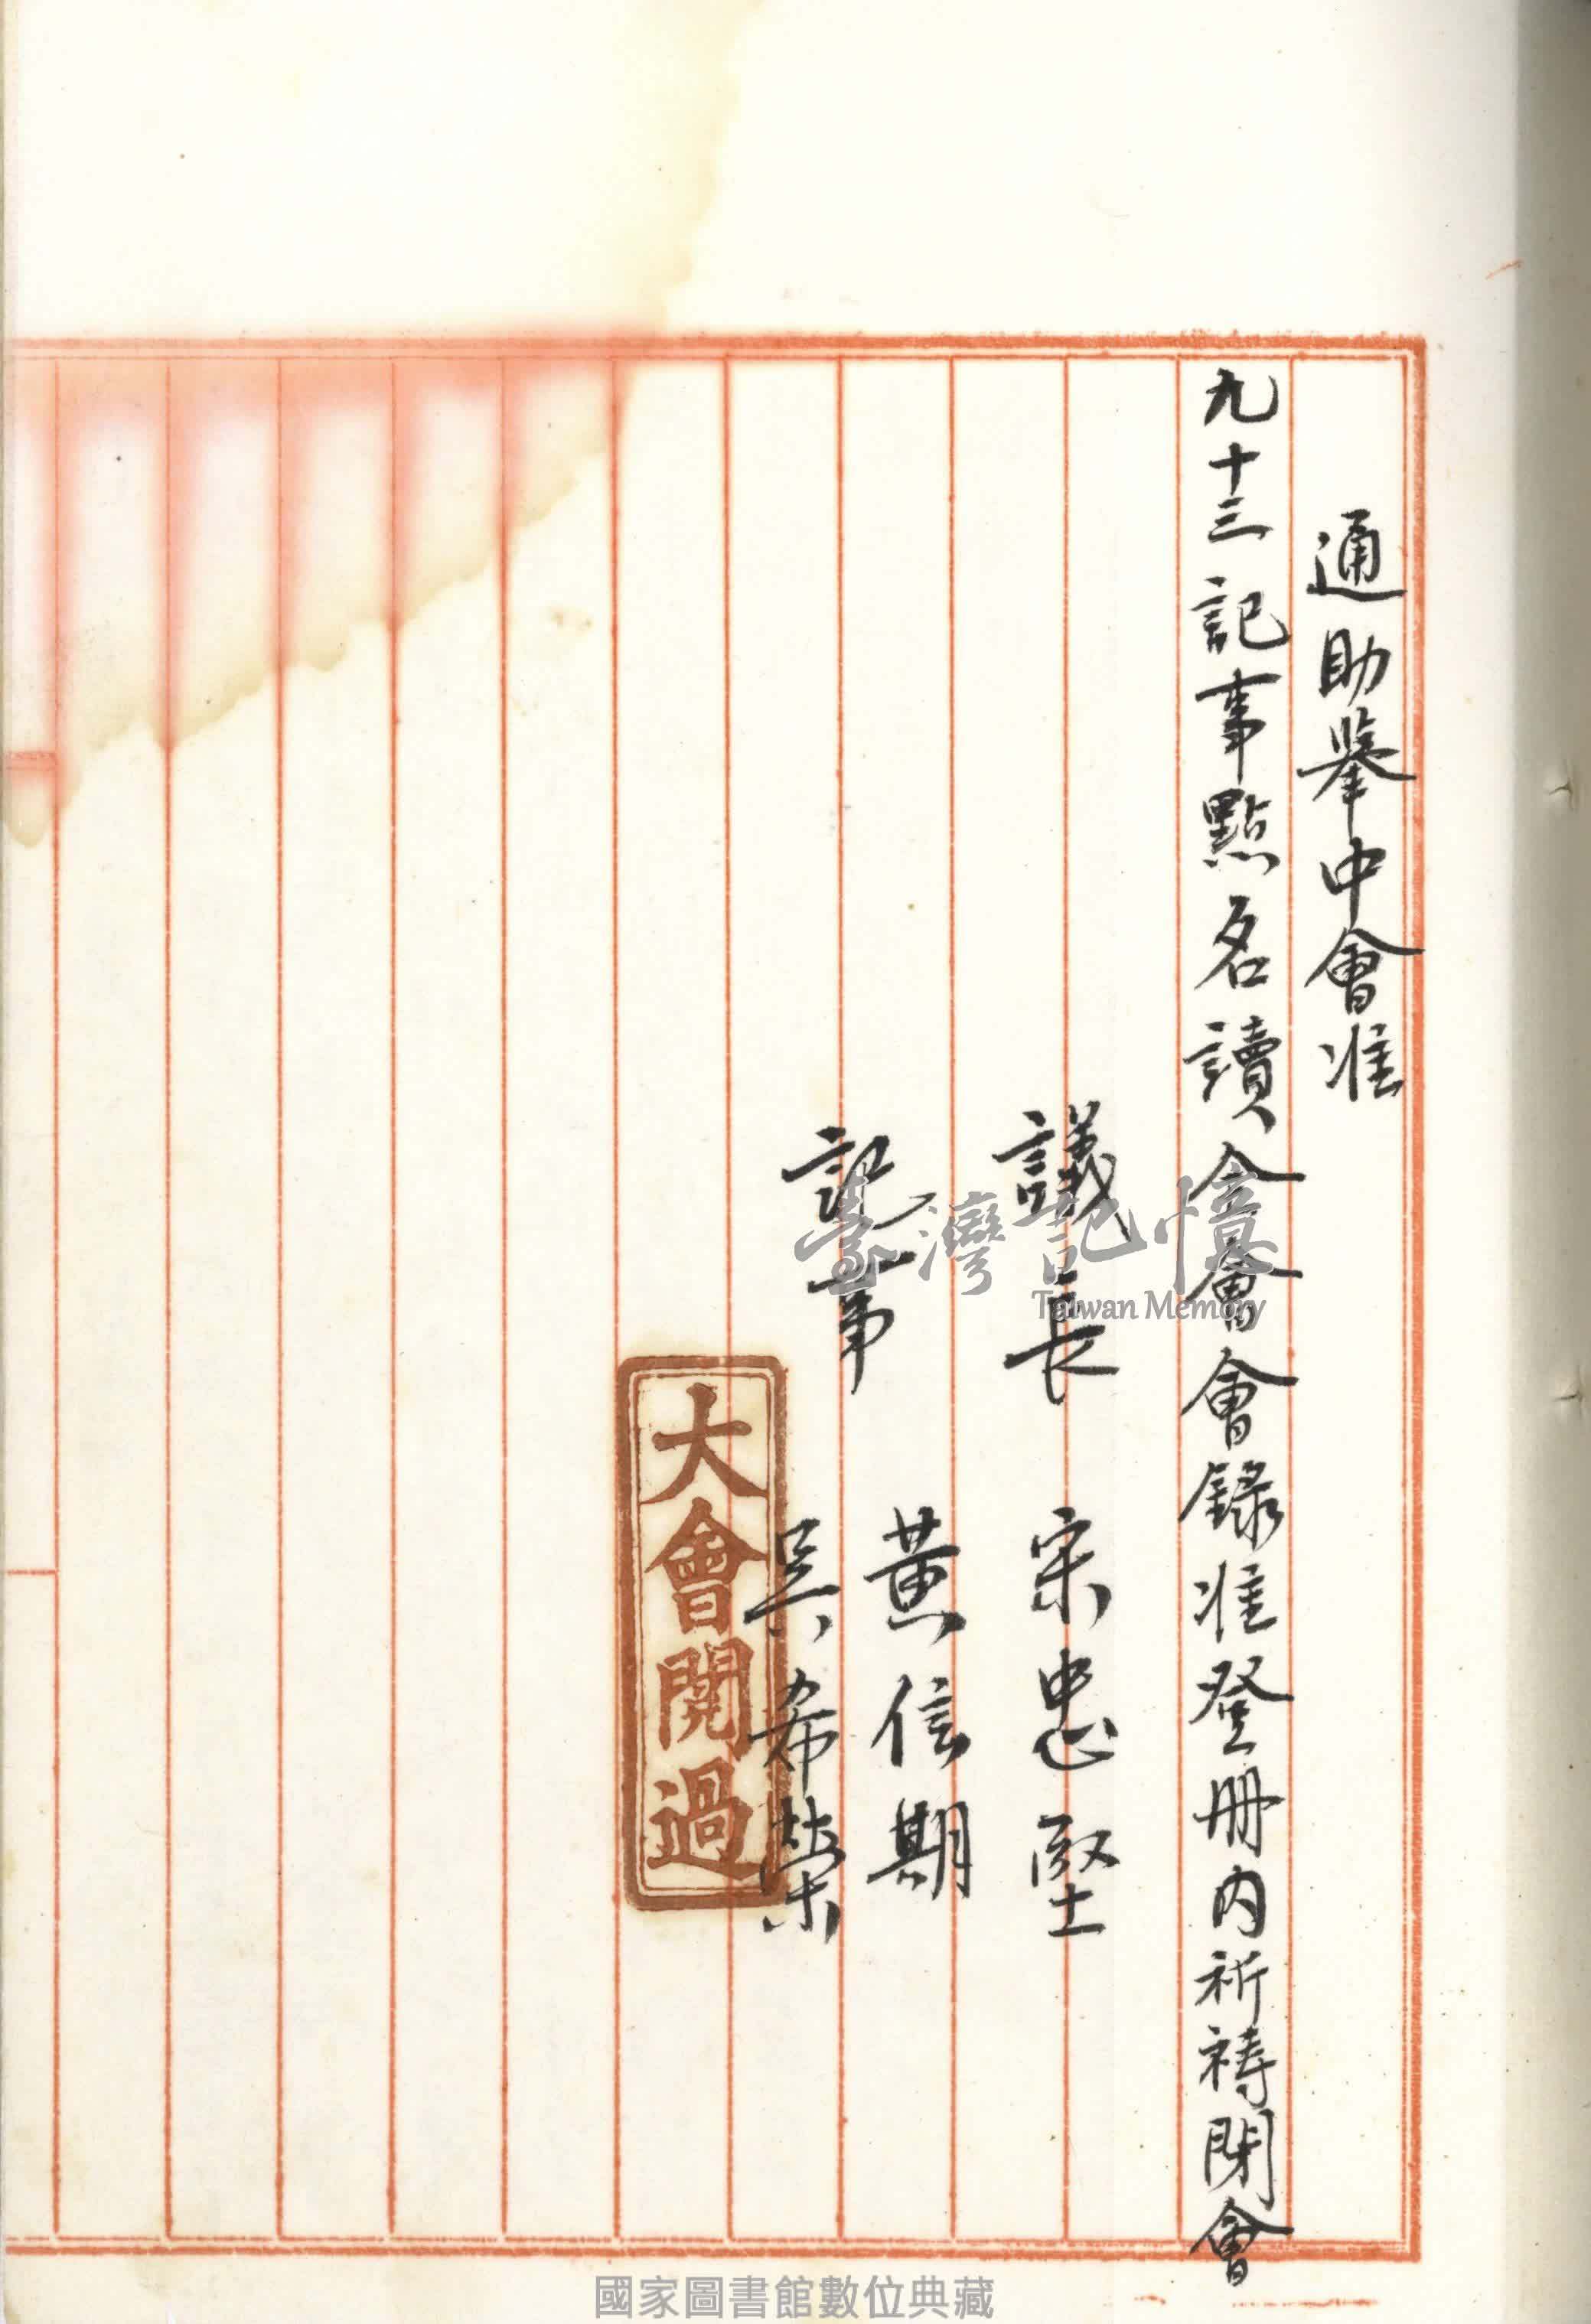 通助舉中會准
九十三記事點名讀會會錄准登冊内祈禱閉會
議長 宋忠堅
記事 黃信期
吳希榮
大會閱過
臺灣記憶
Taiwan Memory
國家圖書館數位典藏